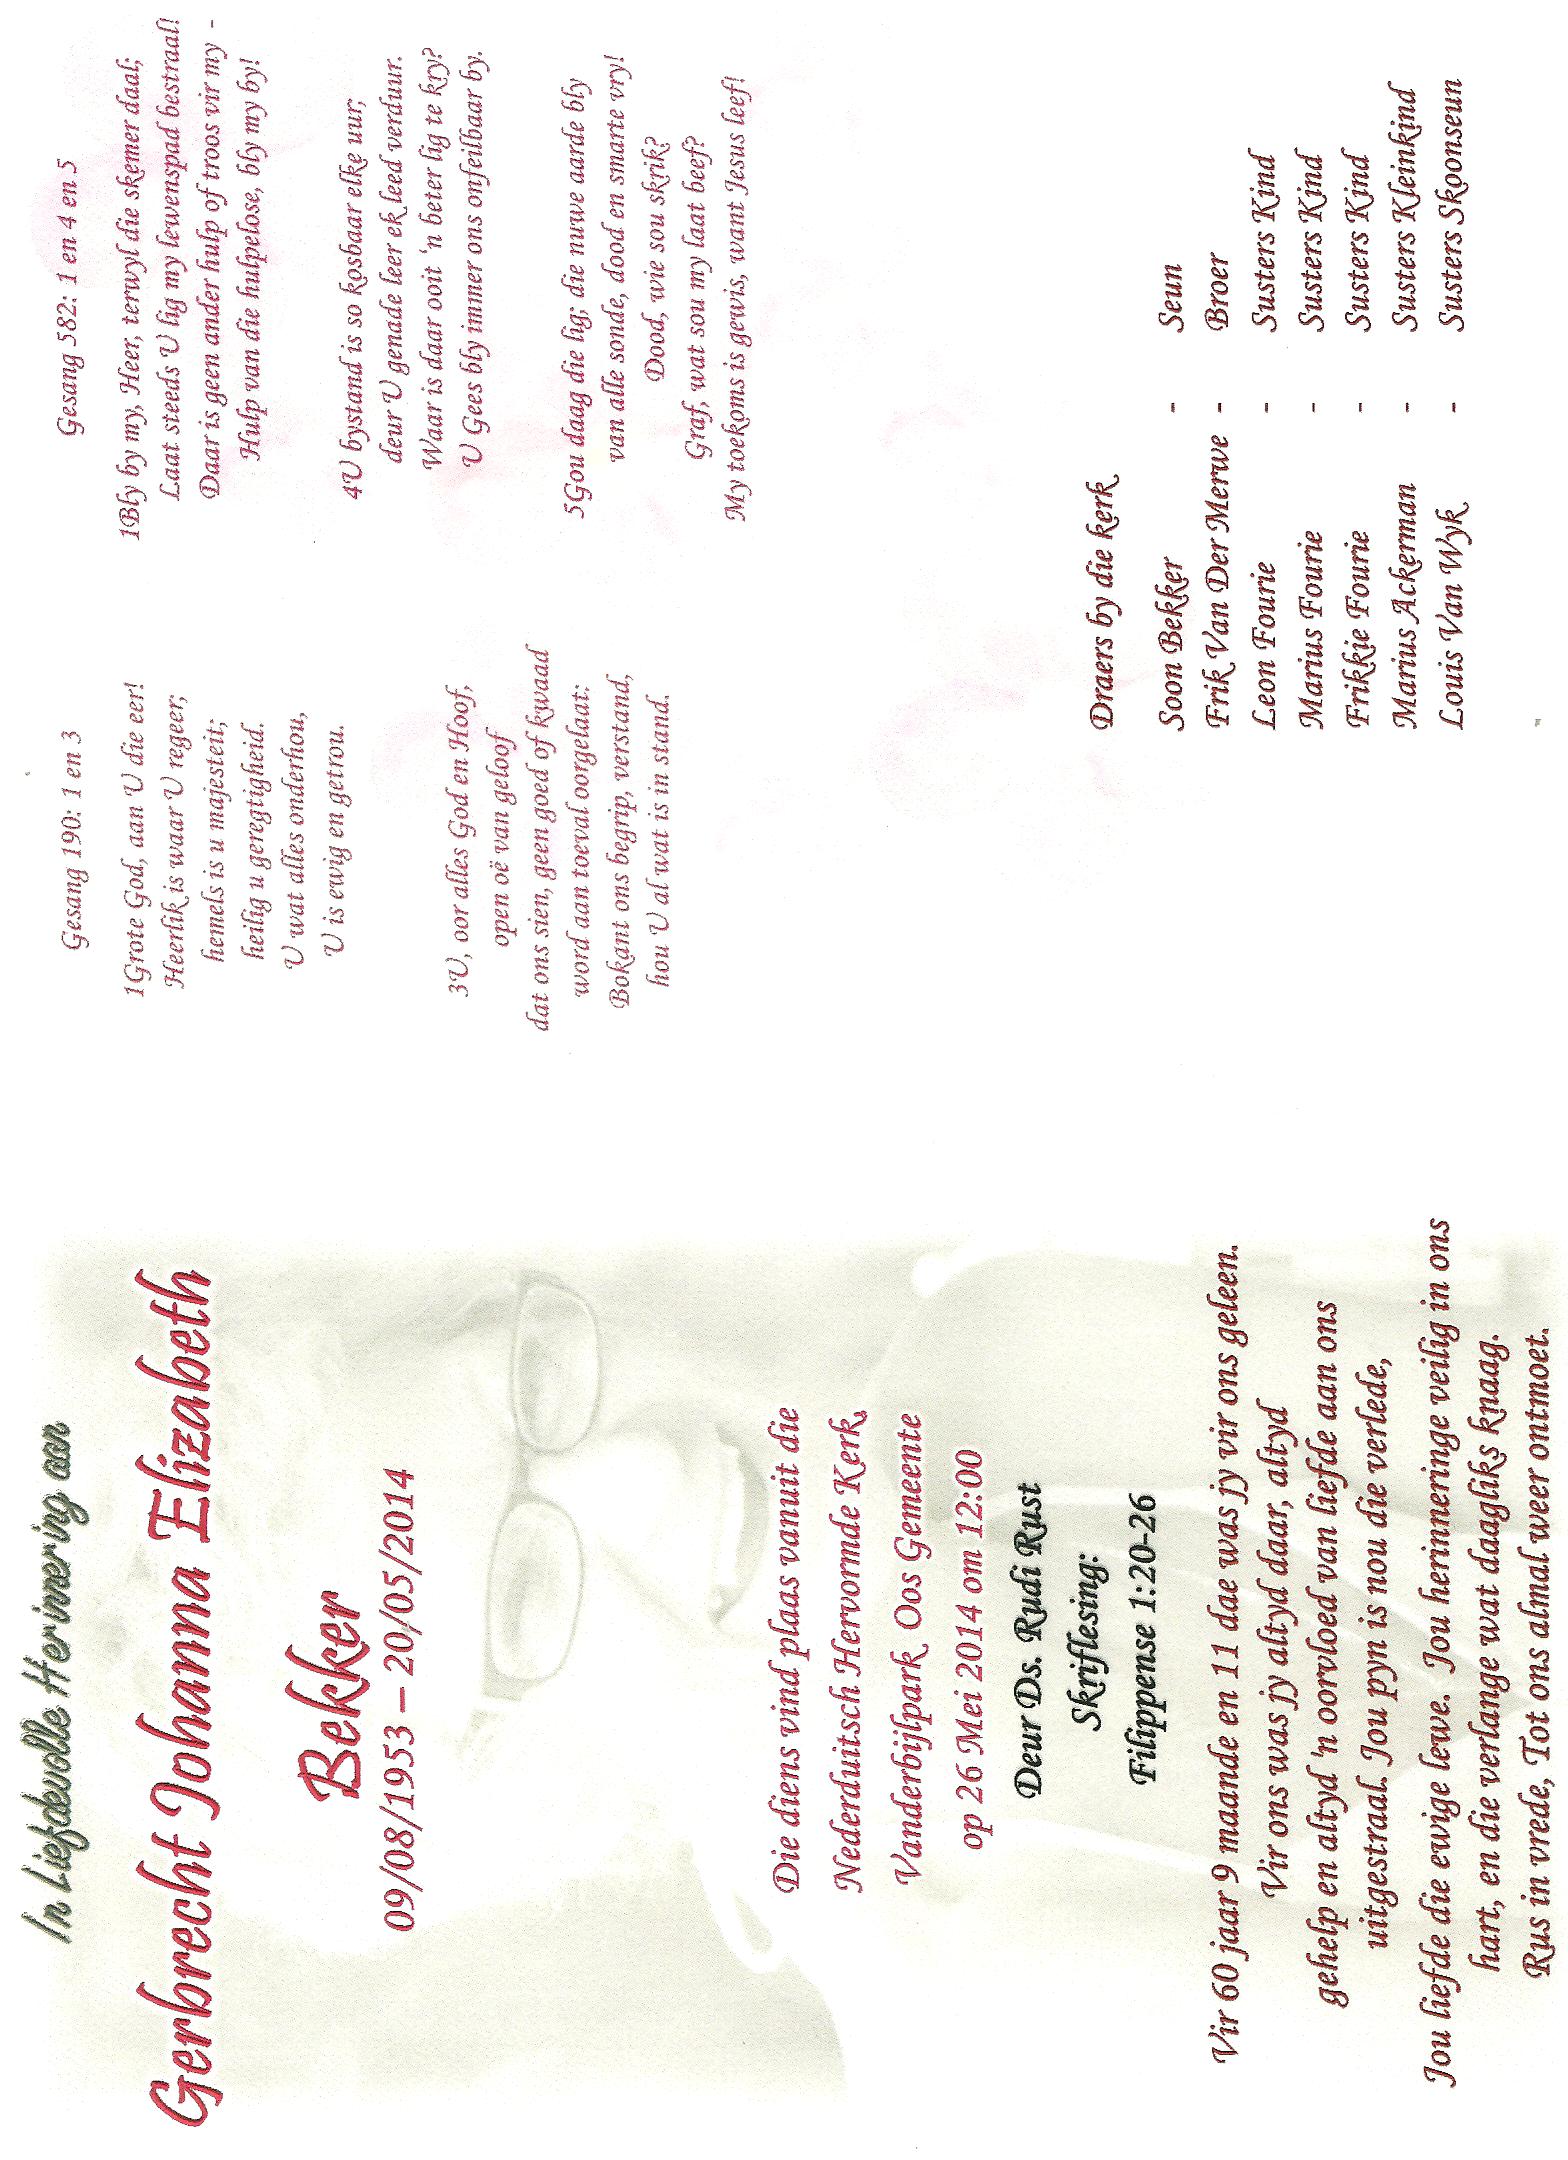 In Liefdevolle Herinnering aan
Gerbrecht Johanna Elizabeth
Bekker
09/08/1953 – 20/05/2014
Die diens vind plaas vanuit die
Nederduitsch Hervormde Kerk,
Vanderbijlpark Oos Gemeente
op 26 Mei 2014 om 12:00
Deur Ds. Rudi Rust
Skriflesing:
Filippense 1:20-26
Vir 60 jaar 9 maande en 11 dae was jy vir ons geleen.
Vir ons was jy altyd daar, altyd
gehelp en altyd 'n oorvloed van liefde aan ons
uitgestraal. Jou pyn is nou die verlede,
Jou liefde die ewige lewe. Jou herinneringe veilig in ons
hart, en die verlange wat daagliks knaag.
Rus in vrede, Tot ons almal weer ontmoet.
Gesang 190: 1 en 3
1Grote God, aan U die eer!
Heerlik is waar U regeer;
hemels is u majesteit;
heilig u geregtigheid.
U wat alles onderhou,
U is ewig en getrou.
3U, oor alles God en Hoof,
open oë van geloof
dat ons sien, geen goed of kwaad
word aan toeval oorgelaat:
Bokant ons begrip, verstand,
hou U al wat is in stand.
Gesang 582: 1 en 4 en 5
1Bly by my, Heer, terwyl die skemer daal;
Laat steeds U lig my lewenspad bestraal!
Daar is geen ander hulp of troos vir my -
Hulp van die hulpelose, bly my by!
4U bystand is so kosbaar elke uur;
deur U genade leer ek leed verduur.
Waar is daar ooit 'n beter lig te kry?
U Gees bly immer ons onfeilbaar by.
5Gou daag die lig; die nuwe aarde bly
van alle sonde, dood en smarte vry!
Dood, wie sou skrik?
Graf, wat sou my laat beef?
My toekoms is gewis, want Jesus leef!
Draers by die kerk
Soon Bekker - Seun
Frik Van Der Merwe - Broer
Leon Fourie - Susters Kind
Marius Fourie - Susters Kind
Frikkie Fourie - Susters Kind
Marius Ackerman - Susters Kleinkind
Louis Van Wyk - Susters Skoonseun